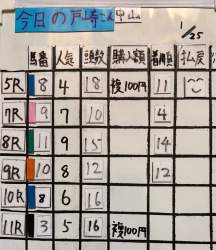 今日の戸崎さん 中山 1/25
馬番 人気 頭数 購入額 着順 払戻
5R 8 4 18 複100円 11
7R 9 7 10 4
8R 11 9 15 14
9R 10 8 12 12
10R 8 6 16
11R 3 5 16 複100円